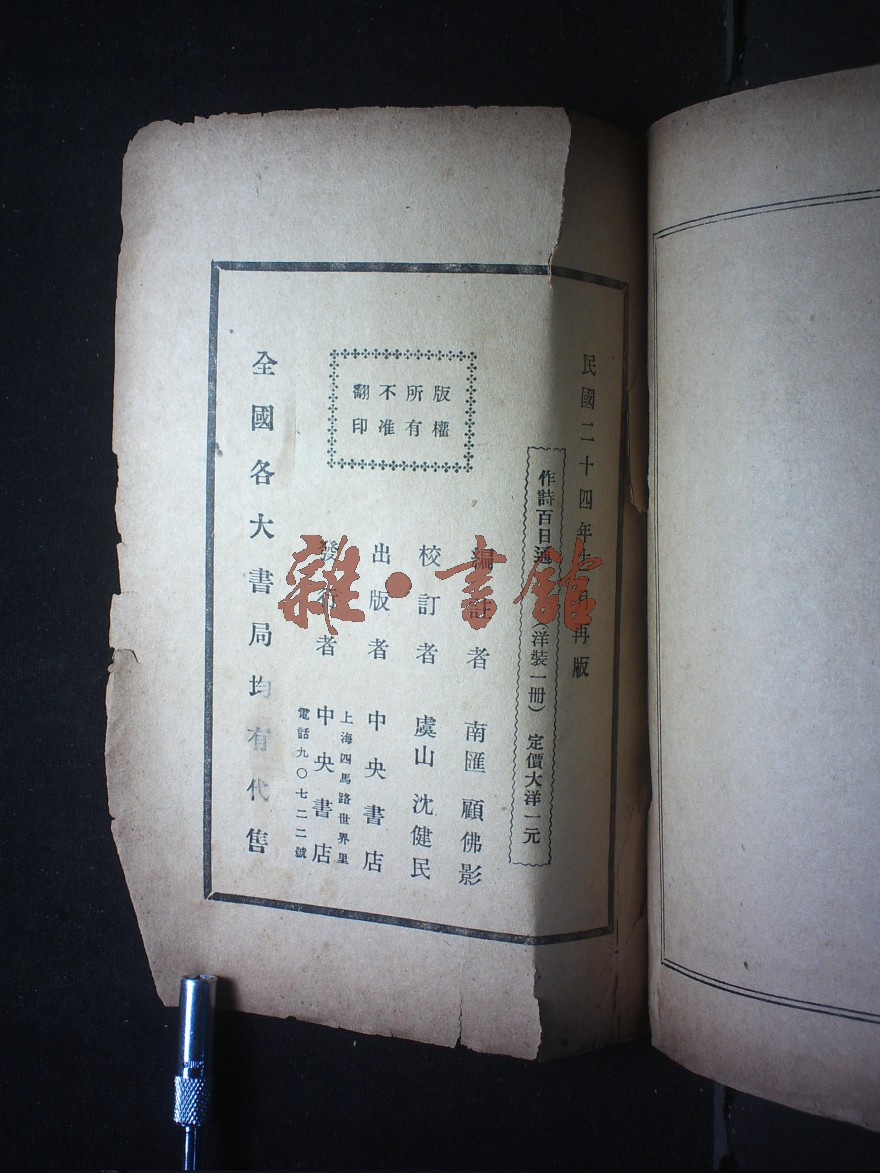 民國二十四年七月再版
作詩百日通 (洋裝一册) 定價大洋一元
編註者 南匯 顧佛影
校訂者 虞山 沈健民
出版者 中央書店
上海四馬路世界里
發行者 中央書店
電話九〇七二二號
版權
所有
不准
翻印
全國各大書局均有代售
雜·書館